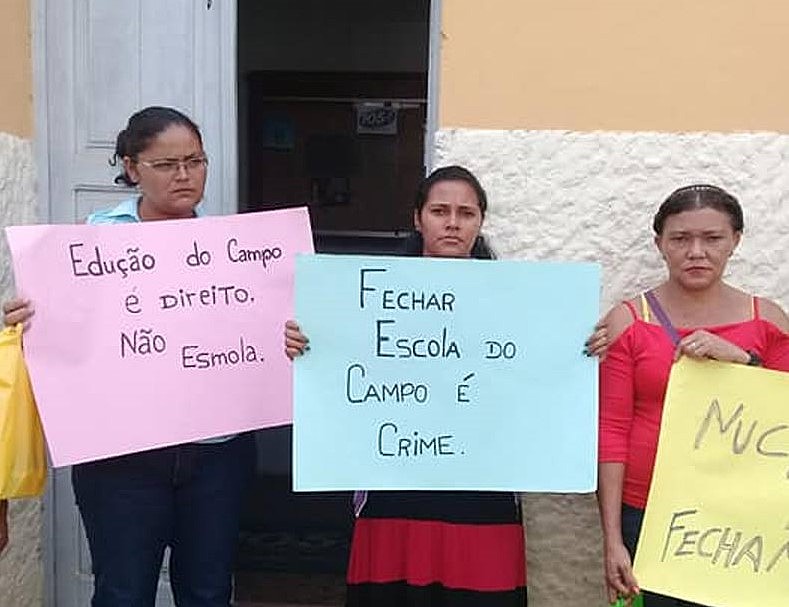 Edução do Campo
é Direito.
Não Esmola.
Fechar
Escola do
Campo é
Crime.